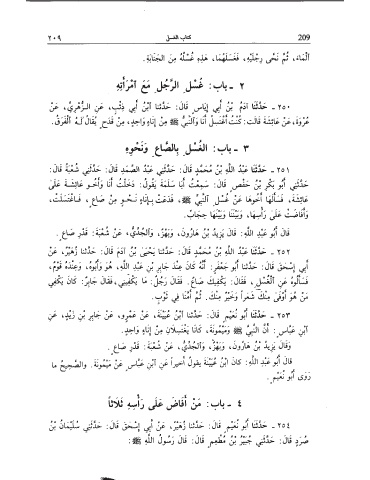 ٢٠٩ كتاب الغسل 209
الْمَاءَ، ثُمَّ نَحَّى رِجْلَيْهِ، فَغَسَلَهُمَا، هَذِهِ غُسْلُهُ مِنَ الجَنَابَةِ.
٢ ـ باب: غُسْلِ الرَّجُلِ مَعَ امْرَأَتِهِ
٢٥٠ ـ حَدَّثَنَا آدَمُ بْنُ أَبِي إِيَاسٍ قَالَ: حَدَّثَنَا ابْنُ أَبِي ذِئْبٍ، عَنِ الزُّهْرِيِّ، عَنْ
عُرْوَةَ، عَنْ عَائِشَةَ قَالَتْ: كُنْتُ أَغْتَسِلُ أَنَا وَالنَّبِيُّ ﷺ مِنْ إِنَاءٍ وَاحِدٍ، مِنْ قَدَحٍ يُقَالُ لَهُ الْفَرَقُ.
٣ ـ باب: الغُسْلِ بِالصَّاعِ وَنَحْوِهِ
٢٥١ ـ حَدَّثَنَا عَبْدُ اللَّهِ بْنُ مُحَمَّدٍ قَالَ: حَدَّثَنِي عَبْدُ الصَّمَدِ قَالَ: حَدَّثَنِي شُعْبَةُ قَالَ:
حَدَّثَنِي أَبُو بَكْرِ بْنُ حَفْصٍ قَالَ: سَمِعْتُ أَبَا سَلَمَةَ يَقُولُ: دَخَلْتُ أَنَا وَأَخُو عَائِشَةَ عَلَى
عَائِشَةَ، فَسَأَلَهَا أَخُوهَا عَنْ غُسْلِ النَّبِيِّ ﷺ، فَدَعَتْ بِإِنَاءٍ نَحْوٍ مِنْ صَاعٍ، فَاغْتَسَلَتْ،
وَأَفَاضَتْ عَلَى رَأْسِهَا، وَبَيْنَنَا وَبَيْنَهَا حِجَابٌ.
قَالَ أَبُو عَبْدِ اللَّهِ: قَالَ يَزِيدُ بْنُ هَارُونَ، وَبَهْزٌ، وَالْجُدِّيُّ، عَنْ شُعْبَةَ: قَدْرِ صَاعٍ.
٢٥٢ ـ حَدَّثَنَا عَبْدُ اللَّهِ بْنُ مُحَمَّدٍ قَالَ: حَدَّثَنَا يَحْيَى بْنُ آدَمَ قَالَ: حَدَّثَنَا زُهَيْرٌ، عَنْ
أَبِي إِسْحَقَ قَالَ: حَدَّثَنَا أَبُو جَعْفَرٍ: أَنَّهُ كَانَ عِنْدَ جَابِرِ بْنِ عَبْدِ اللَّهِ، هُوَ وَأَبُوهُ، وَعِنْدَهُ قَوْمٌ،
فَسَأَلُوهُ عَنِ الْغُسْلِ، فَقَالَ: يَكْفِيكَ صَاعٌ. فَقَالَ رَجُلٌ: مَا يَكْفِينِي، فَقَالَ جَابِرٌ: كَانَ يَكْفِي
مَنْ هُوَ أَوْفَى مِنْكَ شَعَرًا وَخَيْرٌ مِنْكَ. ثُمَّ أَمَّنَا فِي ثَوْبٍ.
٢٥٣ ـ حَدَّثَنَا أَبُو نُعَيْمٍ قَالَ: حَدَّثَنَا ابْنُ عُيَيْنَةَ، عَنْ عَمْرٍو، عَنْ جَابِرِ بْنِ زَيْدٍ، عَنِ
ابْنِ عَبَّاسٍ: أَنَّ النَّبِيَّ ﷺ وَمَيْمُونَةَ، كَانَا يَغْتَسِلَانِ مِنْ إِنَاءٍ وَاحِدٍ.
وَقَالَ يَزِيدُ بْنُ هَارُونَ، وَبَهْزٌ، وَالْجُدِّيُّ، عَنْ شُعْبَةَ: قَدْرِ صَاعٍ.
قَالَ أَبُو عَبْدِ اللَّهِ: كَانَ ابْنُ عُيَيْنَةَ يَقُولُ أَخِيراً عَنِ ابْنِ عَبَّاسٍ عَنْ مَيْمُونَةَ. وَالصَّحِيحُ مَا
رَوَى أَبُو نُعَيْمٍ.
٤ ـ باب: مَنْ أَفَاضَ عَلَى رَأْسِهِ ثَلَاثاً
٢٥٤ ـ حَدَّثَنَا أَبُو نُعَيْمٍ قَالَ: حَدَّثَنَا زُهَيْرٌ، عَنْ أَبِي إِسْحَقَ قَالَ: حَدَّثَنِي سُلَيْمَانُ بْنُ
صُرَدٍ قَالَ: حَدَّثَنِي جُبَيْرُ بْنُ مُطْعِمٍ قَالَ: قَالَ رَسُولُ اللَّهِ ﷺ: